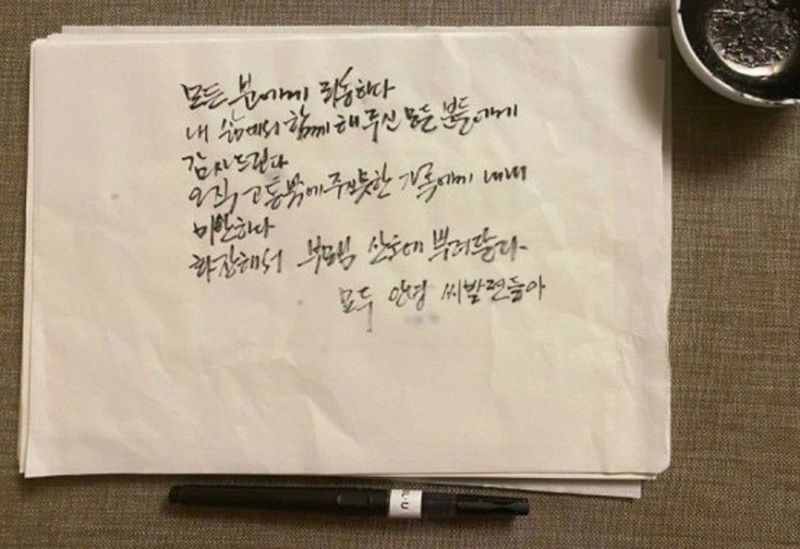 모든 분에게 죄송하다
내 삶에서 함께 해 주신 모든 분들에게
감사드린다
오직 고통밖에 주지 못한 가족에게 내내
미안하다
화장해서 부모님 산소에 뿌려달라.
모두 안녕 씨발련들아